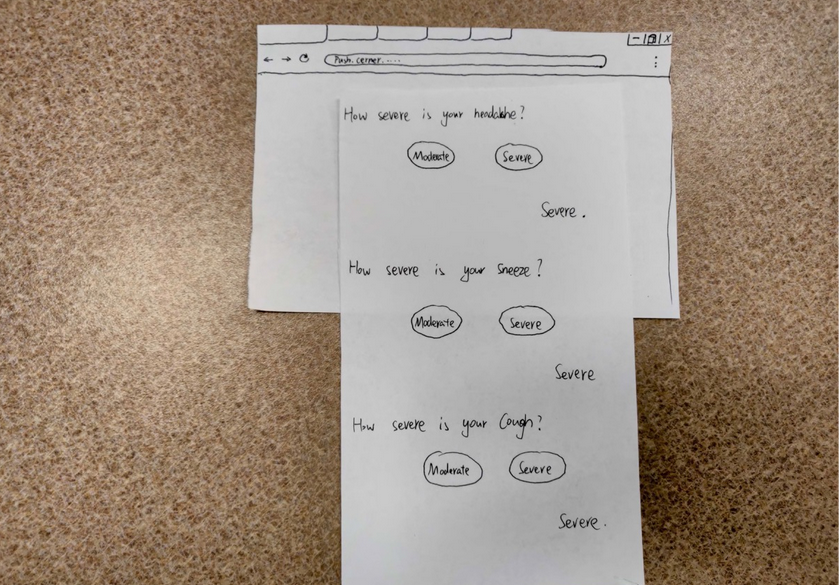 Push.cerner.....
How severe is your headakhe?
Moderate Severe
Severe.
How severe is your Sneeze?
Moderate Severe
Severe
How severe is your Cough?
Moderate Severe
Severe.